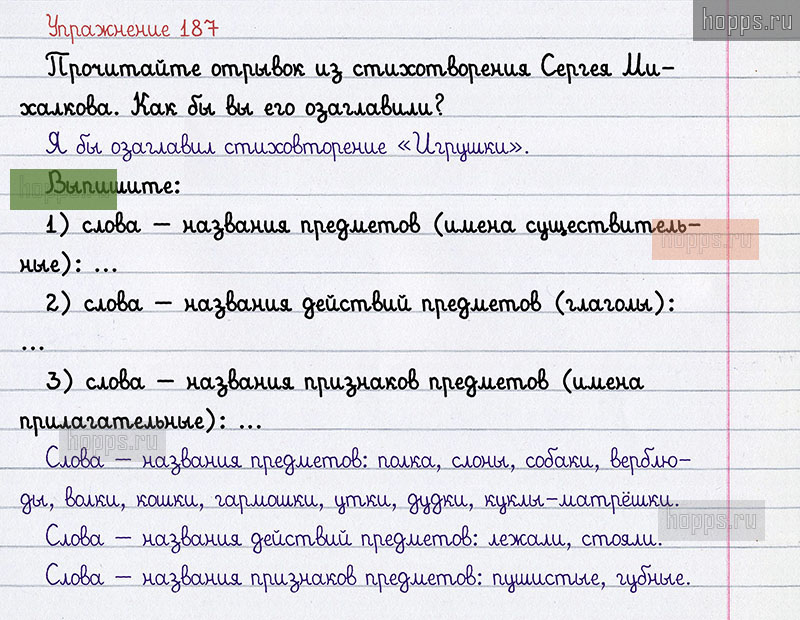 Упражнение 187
hopps.ru
Прочитайте отрывок из стихотворения Сергея Ми-
халкова. Как бы вы его озаглавили?
Я бы озаглавил стиховторение «Игрушки».
Выпишите:
hopps.ru
1) слова – названия предметов (имена существитель-
hopps.ru
ные): ...
2) слова – названия действий предметов (глаголы):
...
3) слова – названия признаков предметов (имена
прилагательные): ...
hopps.ru
Слова – названия предметов: полка, слоны, собаки, верблю-
ды, волки, кошки, гармошки, утки, дудки, куклы-матрёшки.
hopps.ru
Слова – названия действий предметов: лежали, стояли.
Слова – названия признаков предметов: пушистые, губные.
hopps.ru